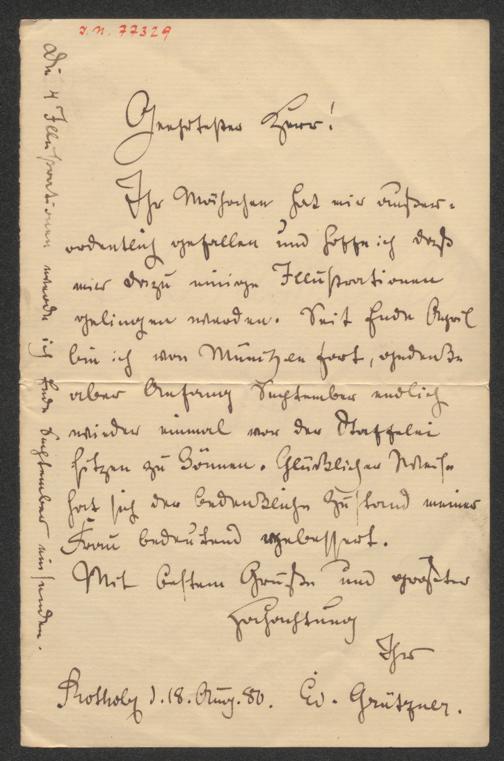 J. N. 77329
Geehrtester Herr!
Ihr Mährchen hat mir außer-
ordentlich gefallen und hoffe ich daß
mir dazu einige Illustrationen
gelingen werden. Seit Ende April
bin ich von München fort, gedenke
aber Anfang September endlich
wieder einmal vor der Staffelei
sitzen zu können. Glücklicher Weise
hat sich der bedenkliche Zustand meiner
Frau bedeutend gebessert.
Mit bestem Gruße und größter
Hochachtung
Ihr
Rotholz d. 18. Aug. 80. Ed. Grützner.
Die 4 Illustrationen werde ich Ende September einsenden.